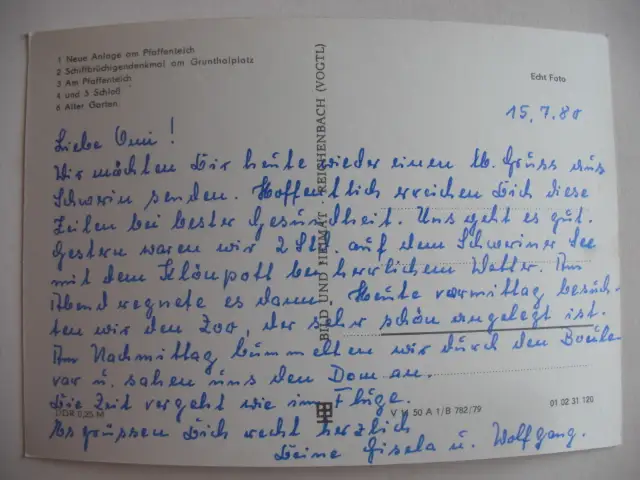 1 Neue Anlage am Pfaffenteich
2 Schiffbrüchigendenkmal am Grunthalplatz
3 Am Pfaffenteich
4 und 5 Schloß
6 Alter Garten
Echt Foto
15.7.80
Liebe Omi!
Wir möchten Dir heute wieder einen lb. Gruss aus
Schwerin senden. Hoffentlich erreichen Dich diese
Zeilen bei bester Gesundheit. Uns geht es gut.
Gestern waren wir 2 Std. auf dem Schweriner See
mit dem Klönpott bei herrlichem Wetter. Am
Abend regnete es dann. Heute vormittag besuch-
ten wir den Zoo, der sehr schön angelegt ist.
Am Nachmittag bummelten wir durch den Boule-
var u. sahen uns den Dom an.
Die Zeit vergeht wie im Fluge.
Es grüssen Dich recht herzlich
Deine Gisela u. Wolfgang.
BILD UND HEIMAT REICHENBACH (VOGTL)
DDR 0,25 M
V 11 50 A 1/B 782/79
01 02 31 120